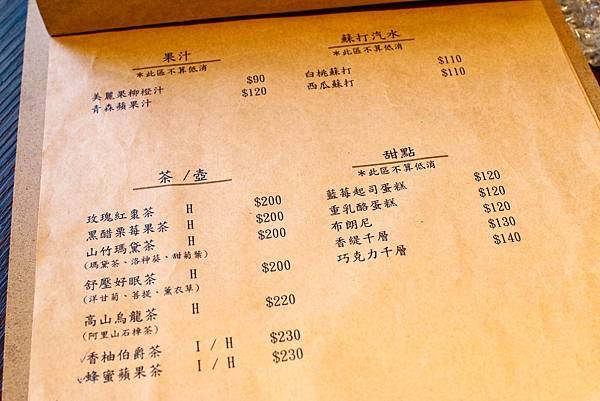 果汁
＊此區不算低消
美麗果柳橙汁 $90
青森蘋果汁 $120
蘇打汽水
＊此區不算低消
白桃蘇打 $110
西瓜蘇打 $110
茶 /壺
玫瑰紅棗茶 H $200
黑醋栗莓果茶 H $200
山竹瑪黛茶 H $200
(瑪黛茶、洛神葵、甜菊葉)
舒壓好眠茶 H $200
(洋甘菊、菩提、薰衣草)
高山烏龍茶 H $220
(阿里山石棹茶)
香柚伯爵茶 I / H $230
蜂蜜蘋果茶 I / H $230
甜點
＊此區不算低消
藍莓起司蛋糕 $120
重乳酪蛋糕 $120
布朗尼 $120
香緹千層 $130
巧克力千層 $140